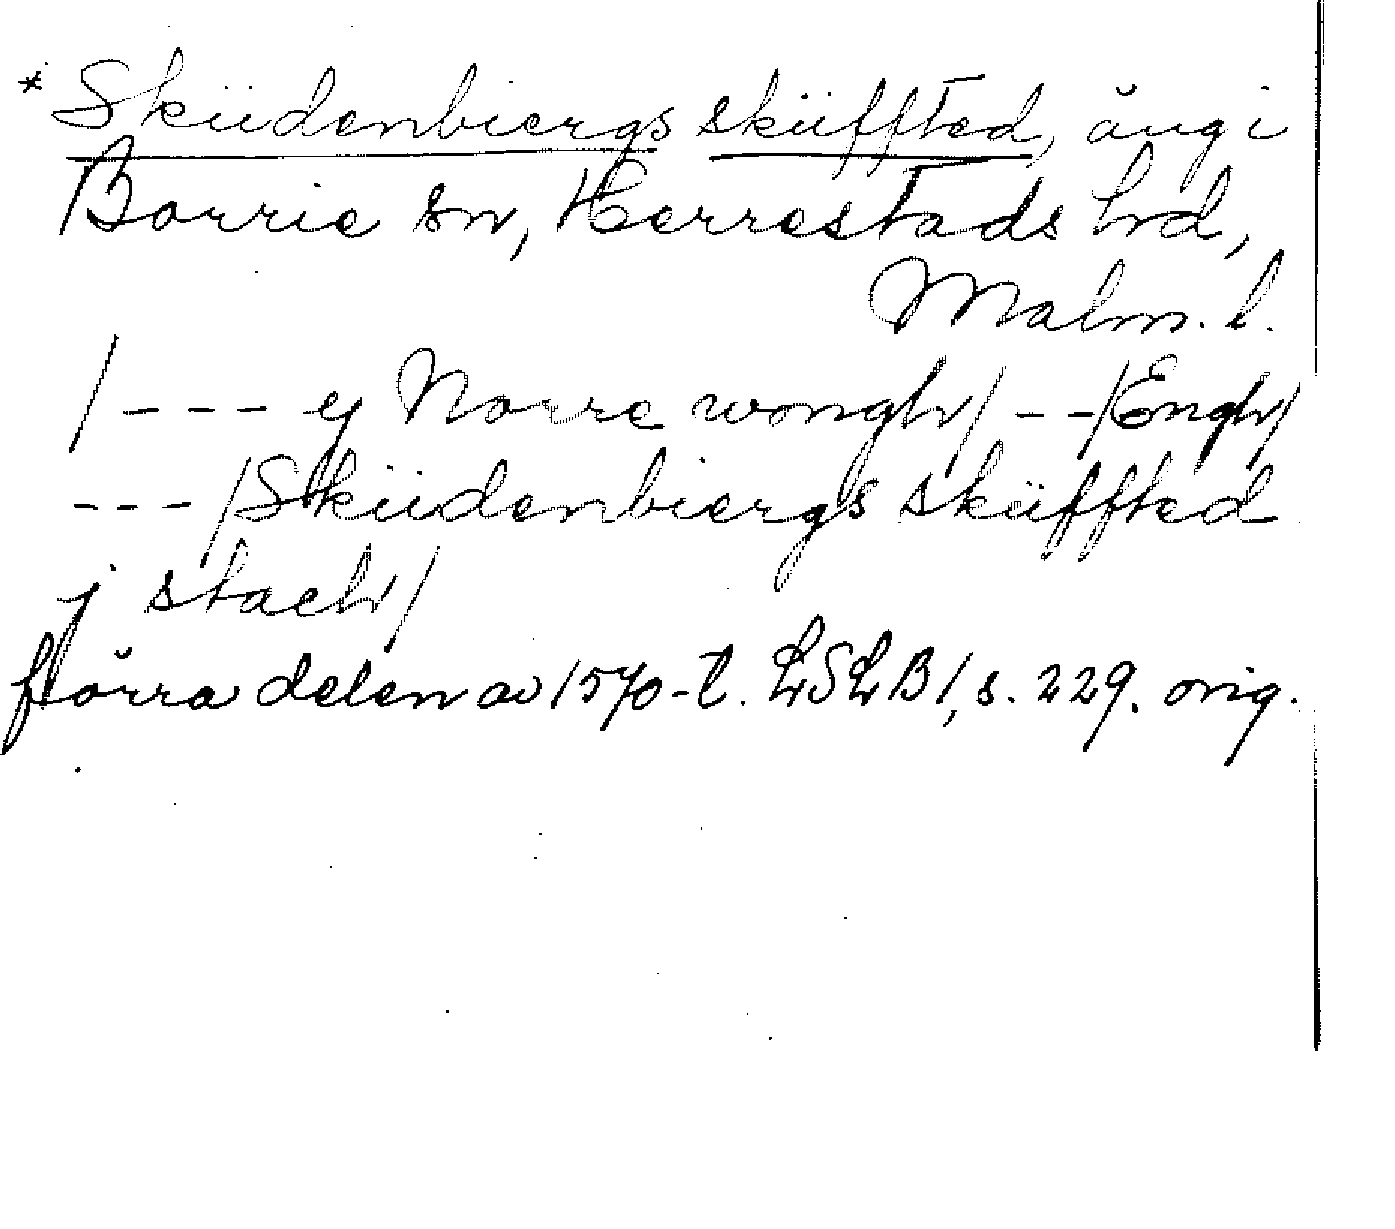 * Sküdenbiergs sküffted, äng i
Borrie sn, Herrestads hd,
Malm. l.
/ - - - ej Norre wongh/ - - /Engh/
- - - /Sküdenbiergs sküffted
j stach/
förra delen av 1570-t. LSLB1, s. 229. orig.